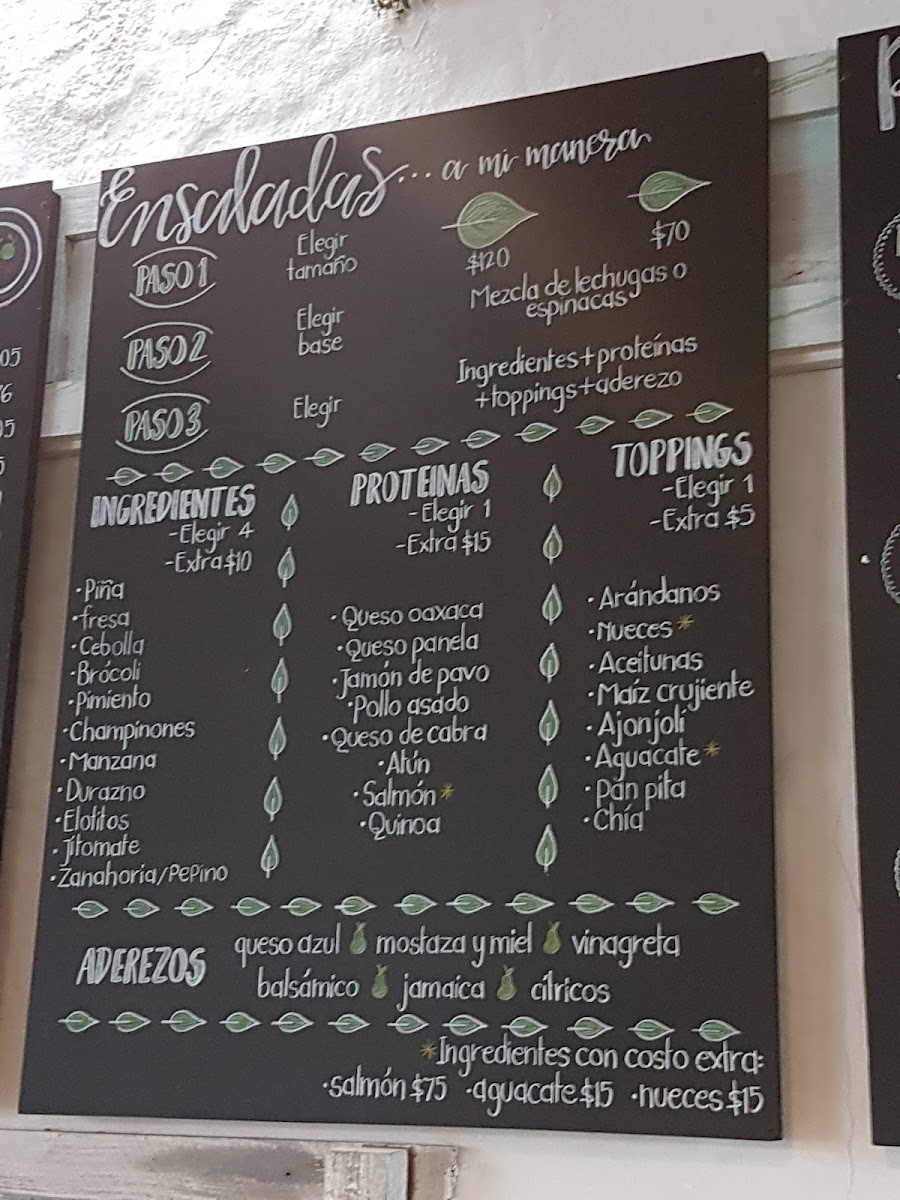 Ensaladas... a mi manera
PASO 1
Elegir
tamaño
$120
$70
PASO 2
Elegir
base
Mezcla de lechugas o
espinacas
PASO 3
Elegir
Ingredientes+proteínas
+toppings+aderezo
INGREDIENTES
-Elegir 4
-Extra $10
•Piña
•fresa
•Cebolla
•Brócoli
•Pimiento
•Champinones
•Manzana
•Durazno
•Elotitos
•Jitomate
•Zanahoria/Pepino
PROTEINAS
-Elegir 1
-Extra $15
•Queso oaxaca
•Queso panela
•Jamón de pavo
•Pollo asado
•Queso de cabra
•Atún
•Salmón*
•Quinoa
TOPPINGS
-Elegir 1
-Extra $5
•Arándanos
•Nueces*
•Aceitunas
•Maíz crujiente
•Ajonjolí
•Aguacate*
•Pan pita
•Chía
ADEREZOS
queso azul mostaza y miel vinagreta
balsámico jamaica cítricos
*Ingredientes con costo extra:
•salmón $75 •aguacate $15 •nueces $15